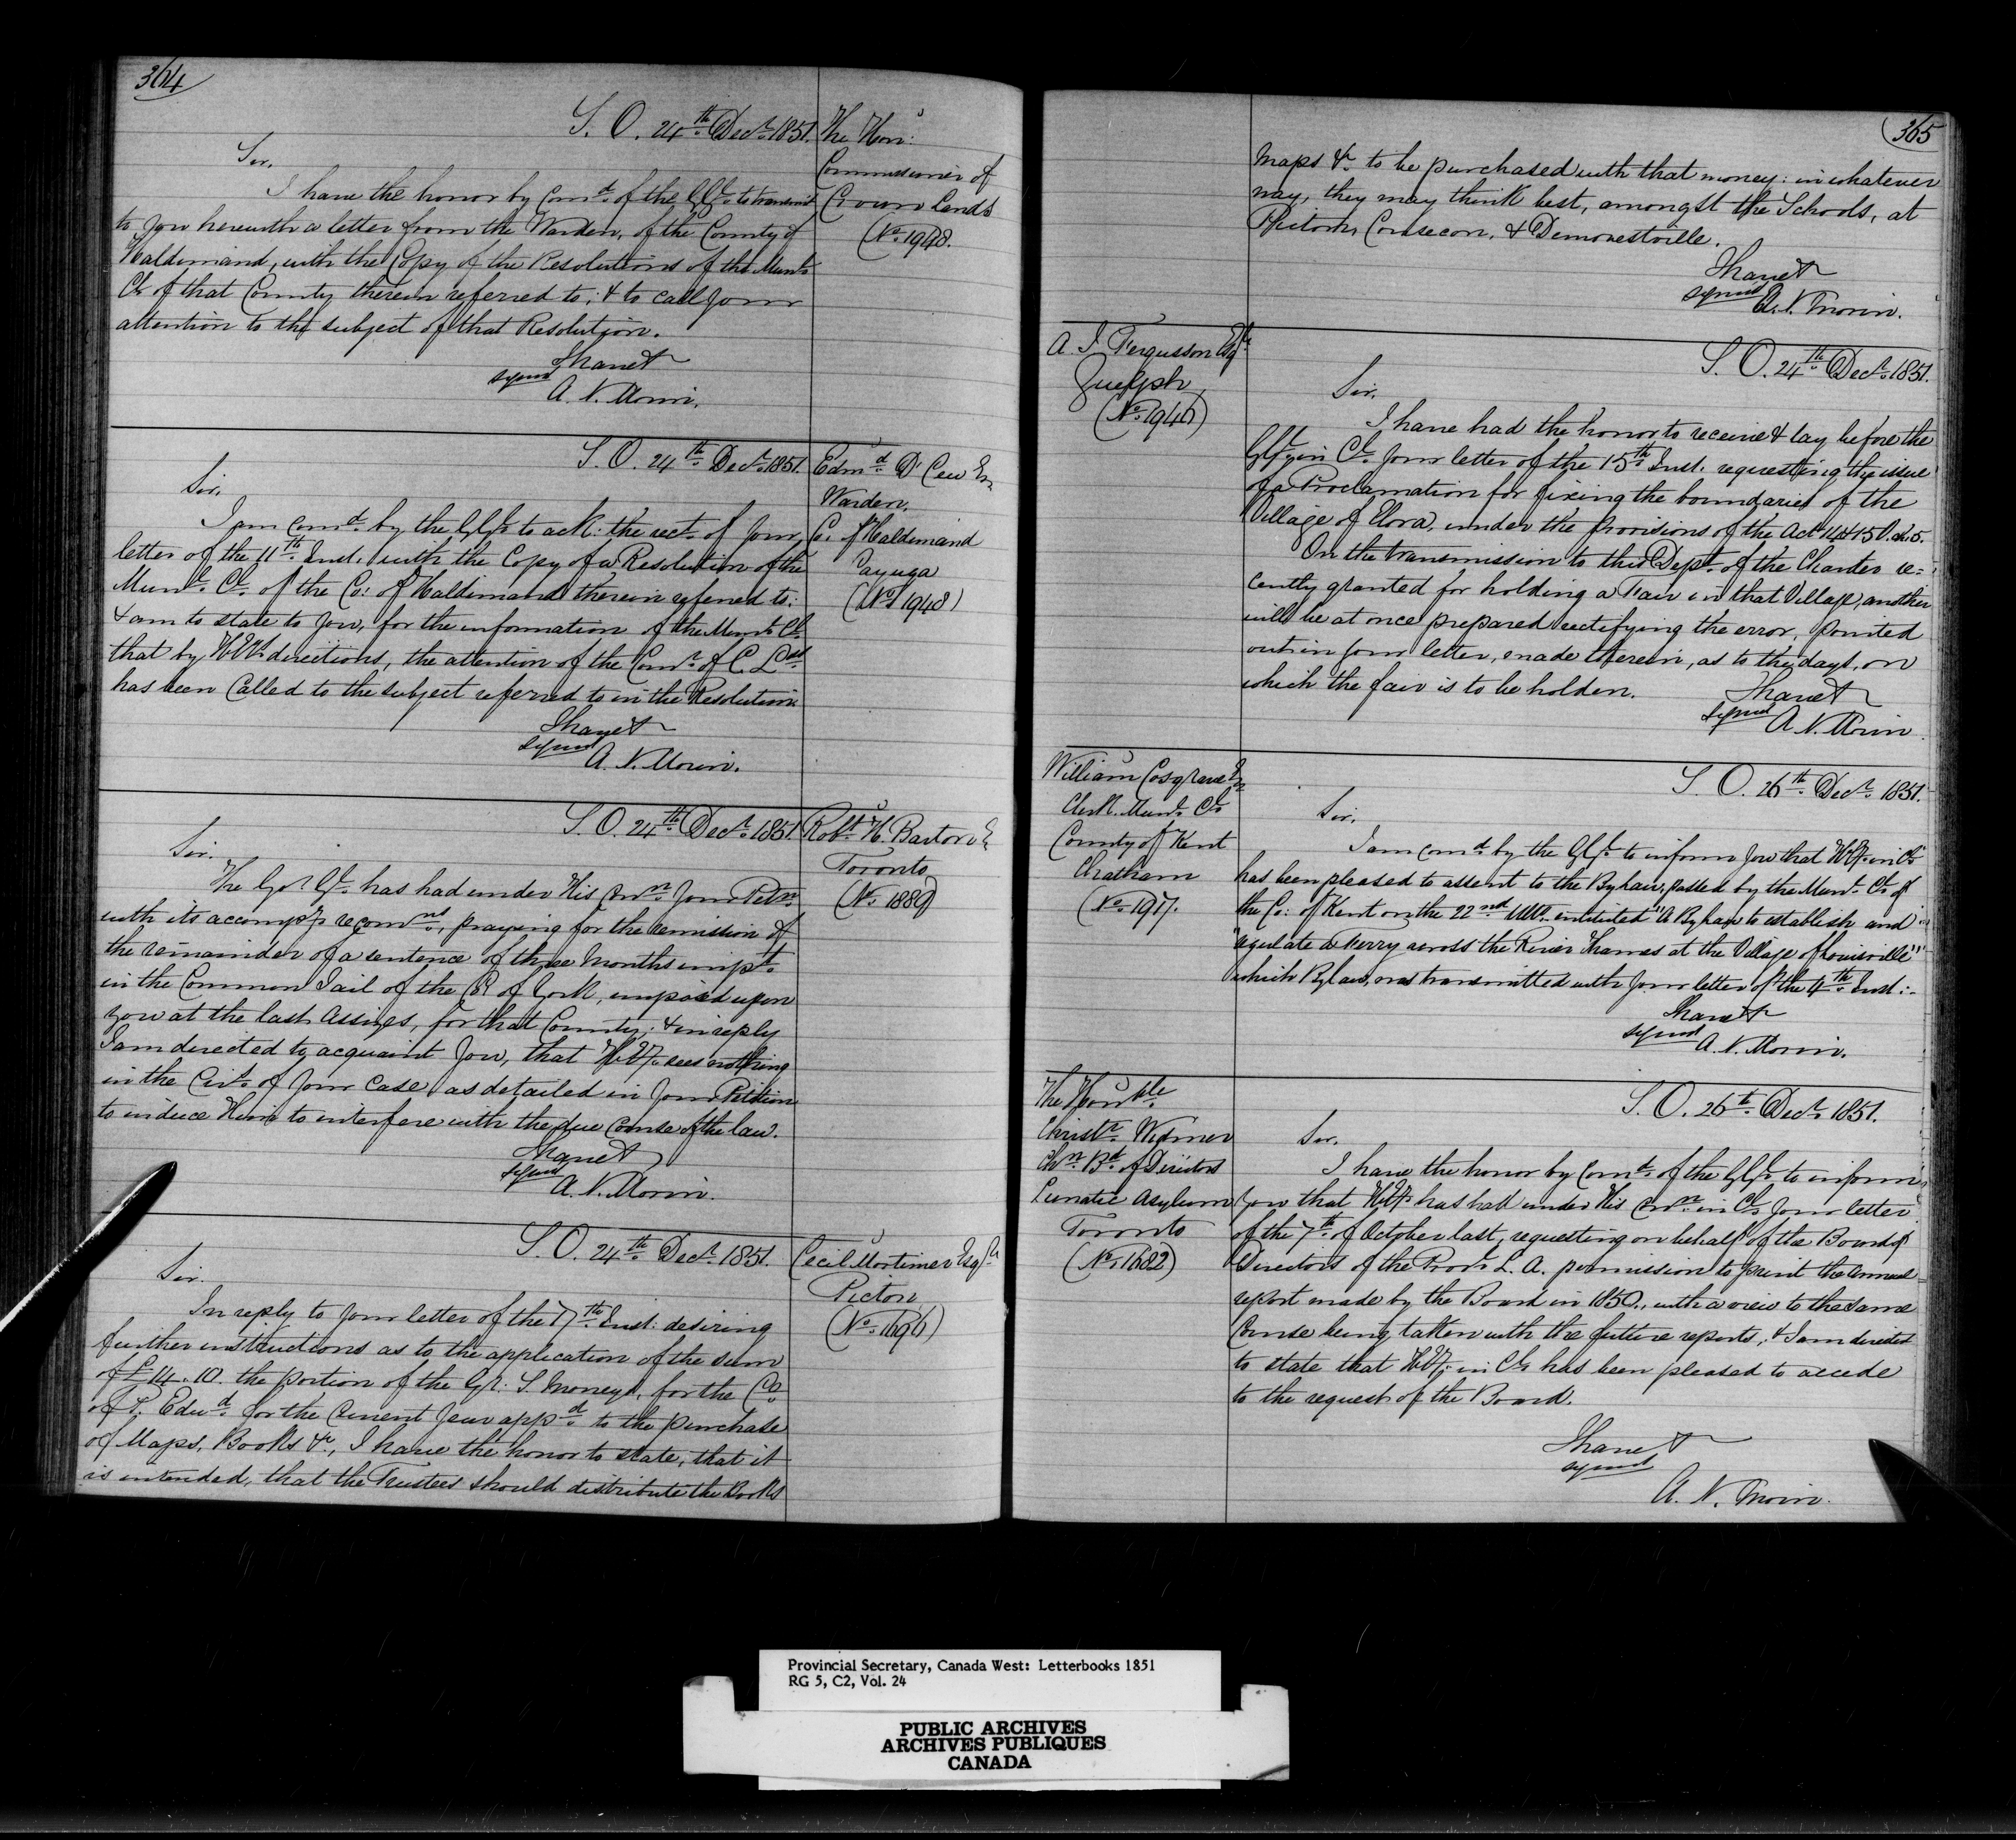 364
S. O. 24th Decr. 1851.
The Hon:
Commissioner of
Crown Lands
(No. 1948.
Sir,
I have the honor by Comd. of the GGl. to transmit
to you herewith a letter from the Warden, of the County of
Haldimand, with the Copy of the Resolutions of the Munl.
Cl. of that County therein referred to; & to call your
attention to the subject of that Resolution.
I have &
signed
A. N. Morin.
S. O. 24th Decr. 1851.
Edmd. D' Cew
Warden,
Co. of Haldimand
Cayuga
(No. 1948)
Sir,
I am comd. by the GGl. to ack: the rect. of your
letter of the 11th Inst. with the Copy of a Resolution of the
Munl. Cl. of the Co: of Haldimand therein referred to:
& am to state to you, for the information of the Munl. Cl.
that by directions, the attention of the Comr. of C. Lds.
has been Called to the subject referred to in the Resolution
I have &
signed
A. N. Morin.
S. O. 24th Decr. 1851.
Robt. H. Barton
Toronto,
(No. 1889)
Sir.
The Govr. Gl. has had under His Conn. your Petn.
with its accompg. recomns., praying for the remission of
the remainder of a sentence of three Months impt.
in the Common Jail of the Co of York, imposed upon
you at the last Assizes, for that County; & in reply
I am directed to acquaint you, that H. E. sees nothing
in the Circs. of your case as detailed in your Petition
to induce Him to interfere with the due Course of the law.
I have &
signed
A. N. Morin.
S. O. 24th Decr. 1851.
Cecil Mortimer Esqr.
Picton
(No. 1696)
Sir.
In reply to your letter of the 17th Inst. desiring
further instructions as to the application of the sum
of £14.10. the portion of the Gr: S. Moneys, for the Co.
of P. Edwd. for the Current year appd. to the purchase
of Maps, Books &c., I have the honor to state, that it
is intended, that the Trustees should distribute the Books
365
Maps &c. to be purchased with that money: in whatever
way, they may think best, amongst the Schools, at
Picton, Consecon, & Demorestville.
I have &
signed
A. N. Morin.
A. J. Fergusson Esqr.
Guelph,
(No. 1946)
S. O. 24th Decr. 1851.
Sir,
I have had the honor to receive & lay before the
GGl. in Cl. your letter of the 15th Inst. requesting the issue
of a Proclamation for fixing the boundaries of the
Village of Elora, under the provisions of the Act 14 & 15 V. ch. 5.
On the transmission to this Dept. of the Charter re=
cently granted for holding a Fair in that Village, another
will be at once prepared rectifying the error, pointed
out in your letter, made therein, as to the days, on
which the fair is to be holden.
I have &
signed
A. N. Morin
William Cosgrave
Clerk. Munl. Cl.
County of Kent
Chatham
(No. 1917.
S. O. 26th Decr. 1851.
Sir,
I am comd. by the GGl. to inform you that H. E. in Cl.
has been pleased to assent to the Bylaw, passed by the Munl. Cl. of
the Co: of Kent on the 22nd Ulto. intituled "A Bylaw to establish and
"regulate a Ferry across the River Thames at the Village of Louisville"
which Bylaw, was transmitted with your letter of the 4th Inst:-
I have &
signed
A. N. Morin.
The Honble.
Christr. Widmer
Chn. Bd. of Directors
Lunatic Asylum
Toronto
(No. 1682)
S. O. 26th Decr. 1851.
Sir,
I have the honor by Comd. of the GGl. to inform
you that H. E. has had under His Conn. in Cl. your letter
of the 7th of October last, requesting on behalf of the Board of
Directors of the Provl. L. A. permission to print the Annual
report made by the Board in 1850., with a view to the same
Course being taken with the future reports; & I am directed
to state that H. E. in Cl. has been pleased to accede
to the request of the Board.
I have &
signed
A. N. Morin.
Provincial Secretary, Canada West: Letterbooks 1851
RG 5, C2, Vol. 24
PUBLIC ARCHIVES
ARCHIVES PUBLIQUES
CANADA